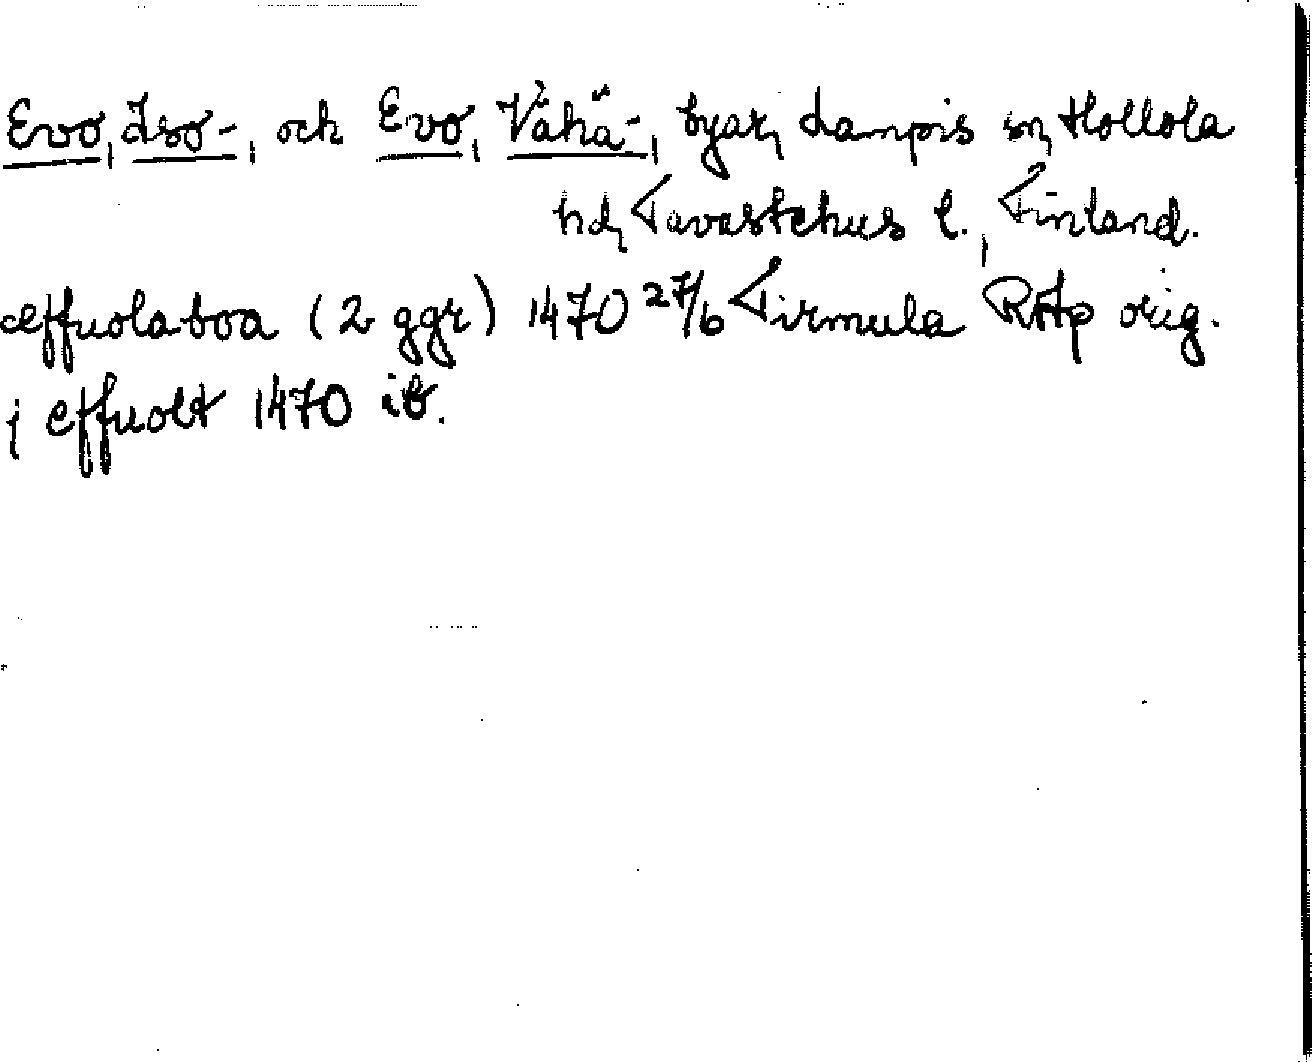 Evo, Iso-, och Evo, Vähä-, byar, Lampis sn, Hollola
hd, Tavastehus l., Finland.
æffuolaboa (2 ggr) 1470 27/6 Tirmula RAp orig.
j effuolt 1470 ib.